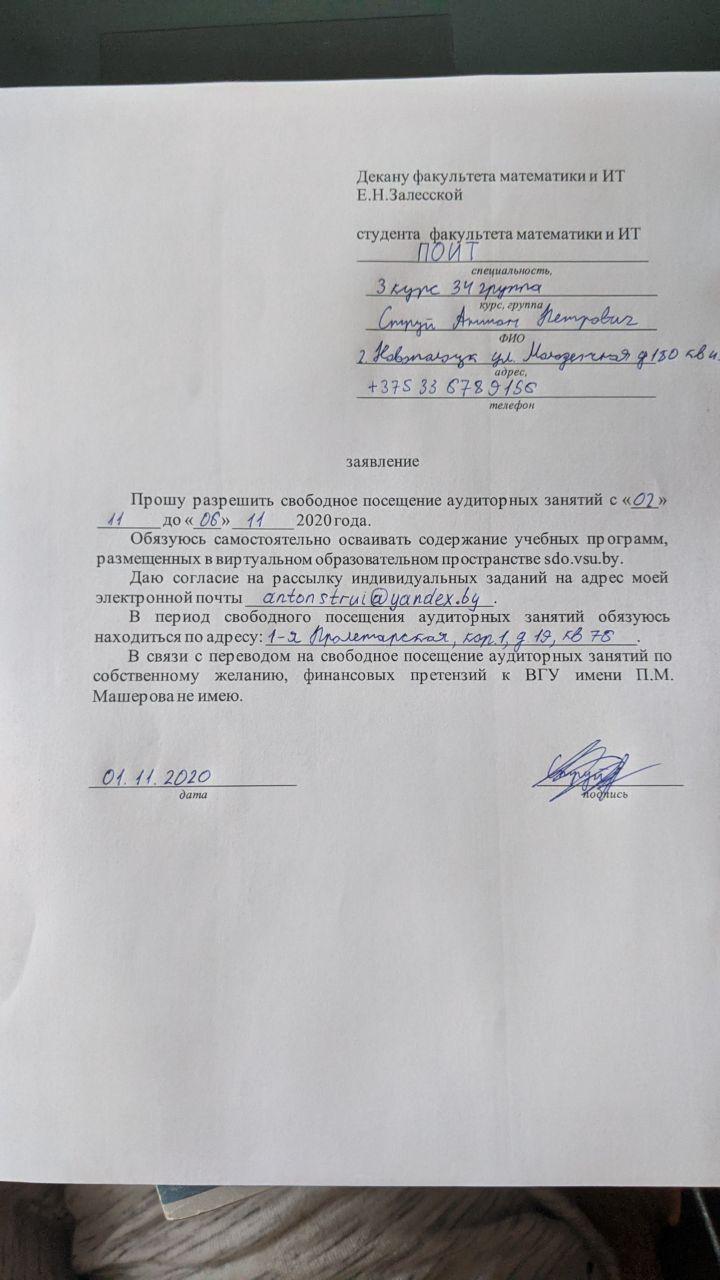 Декану факультета математики и ИТ
Е.Н.Залесской
студента факультета математики и ИТ
ПОИТ
специальность,
3 курс 34 группа
курс, группа
Струй Антон Петрович
ФИО
г. Новополоцк ул. Молодежная д 180 кв
адрес,
+375 33 6789156
телефон
заявление
Прошу разрешить свободное посещение аудиторных занятий с «02»
11 до «06» 11 2020 года.
Обязуюсь самостоятельно осваивать содержание учебных программ,
размещенных в виртуальном образовательном пространстве sdo.vsu.by.
Даю согласие на рассылку индивидуальных заданий на адрес моей
электронной почты antonstrui@yandex.by.
В период свободного посещения аудиторных занятий обязуюсь
находиться по адресу: 1-я Пролетарская, кор 1, д 19, кв 78.
В связи с переводом на свободное посещение аудиторных занятий по
собственному желанию, финансовых претензий к ВГУ имени П.М.
Машерова не имею.
01.11.2020
дата
подпись